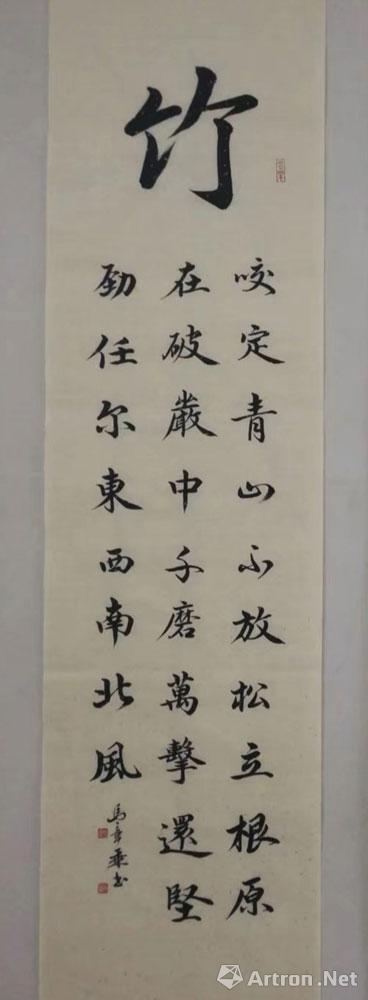 竹
咬定青山不放松立根原
在破巖中千磨萬擊還堅
勁任尔東西南北風
馬章乘书
Artron.Net